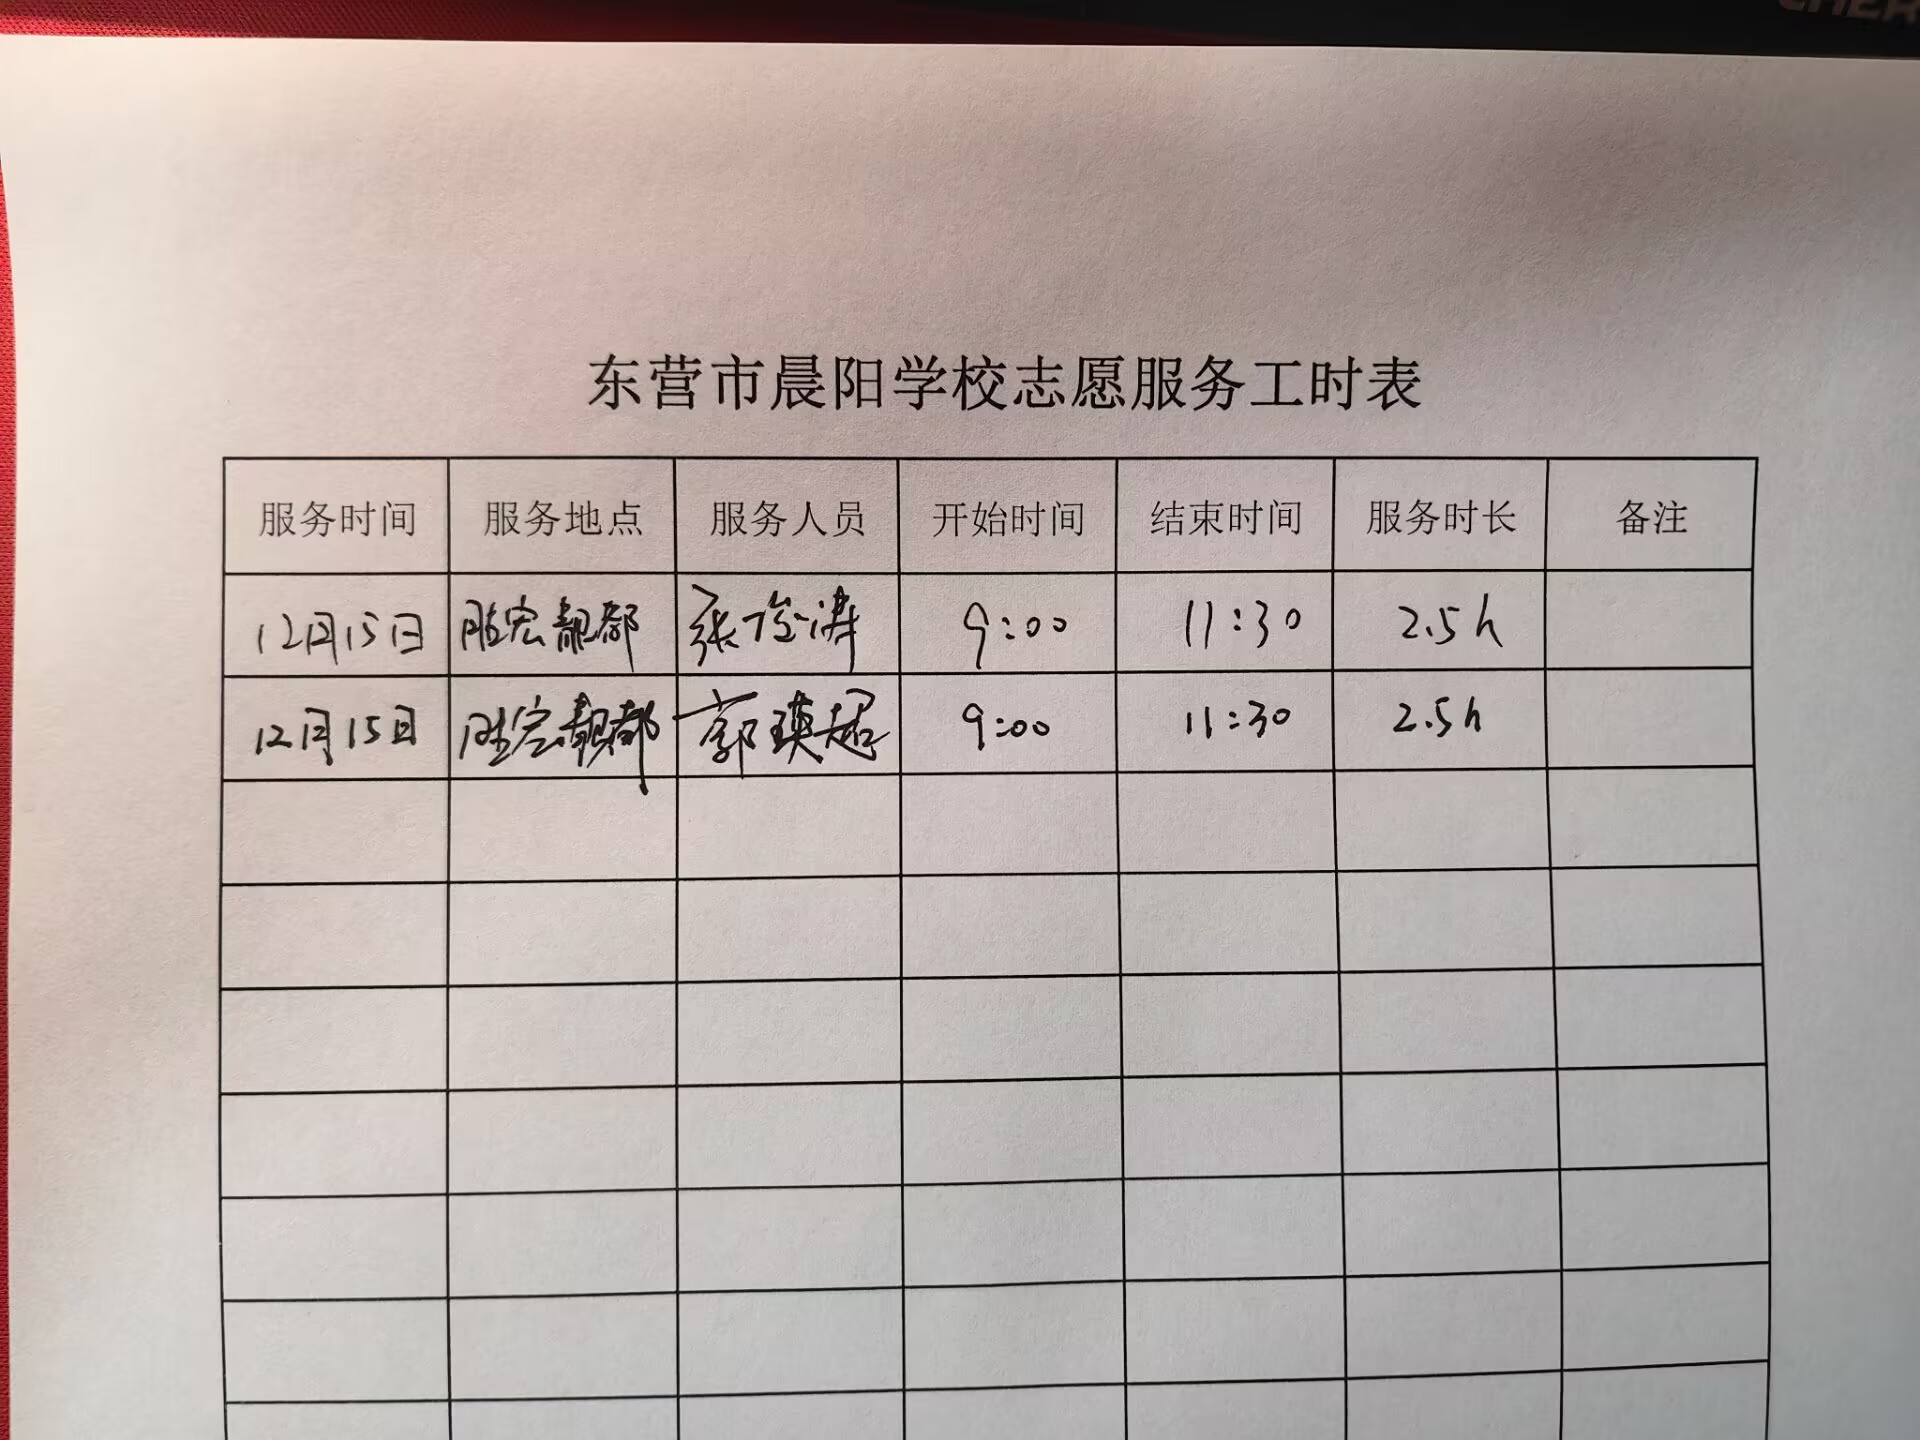 东营市晨阳学校志愿服务工时表
服务时间 服务地点 服务人员 开始时间 结束时间 服务时长 备注
12月15日 胜宏靓都 张俊涛 9:00 11:30 2.5h
12月15日 胜宏靓都 郭瑛超 9:00 11:30 2.5h